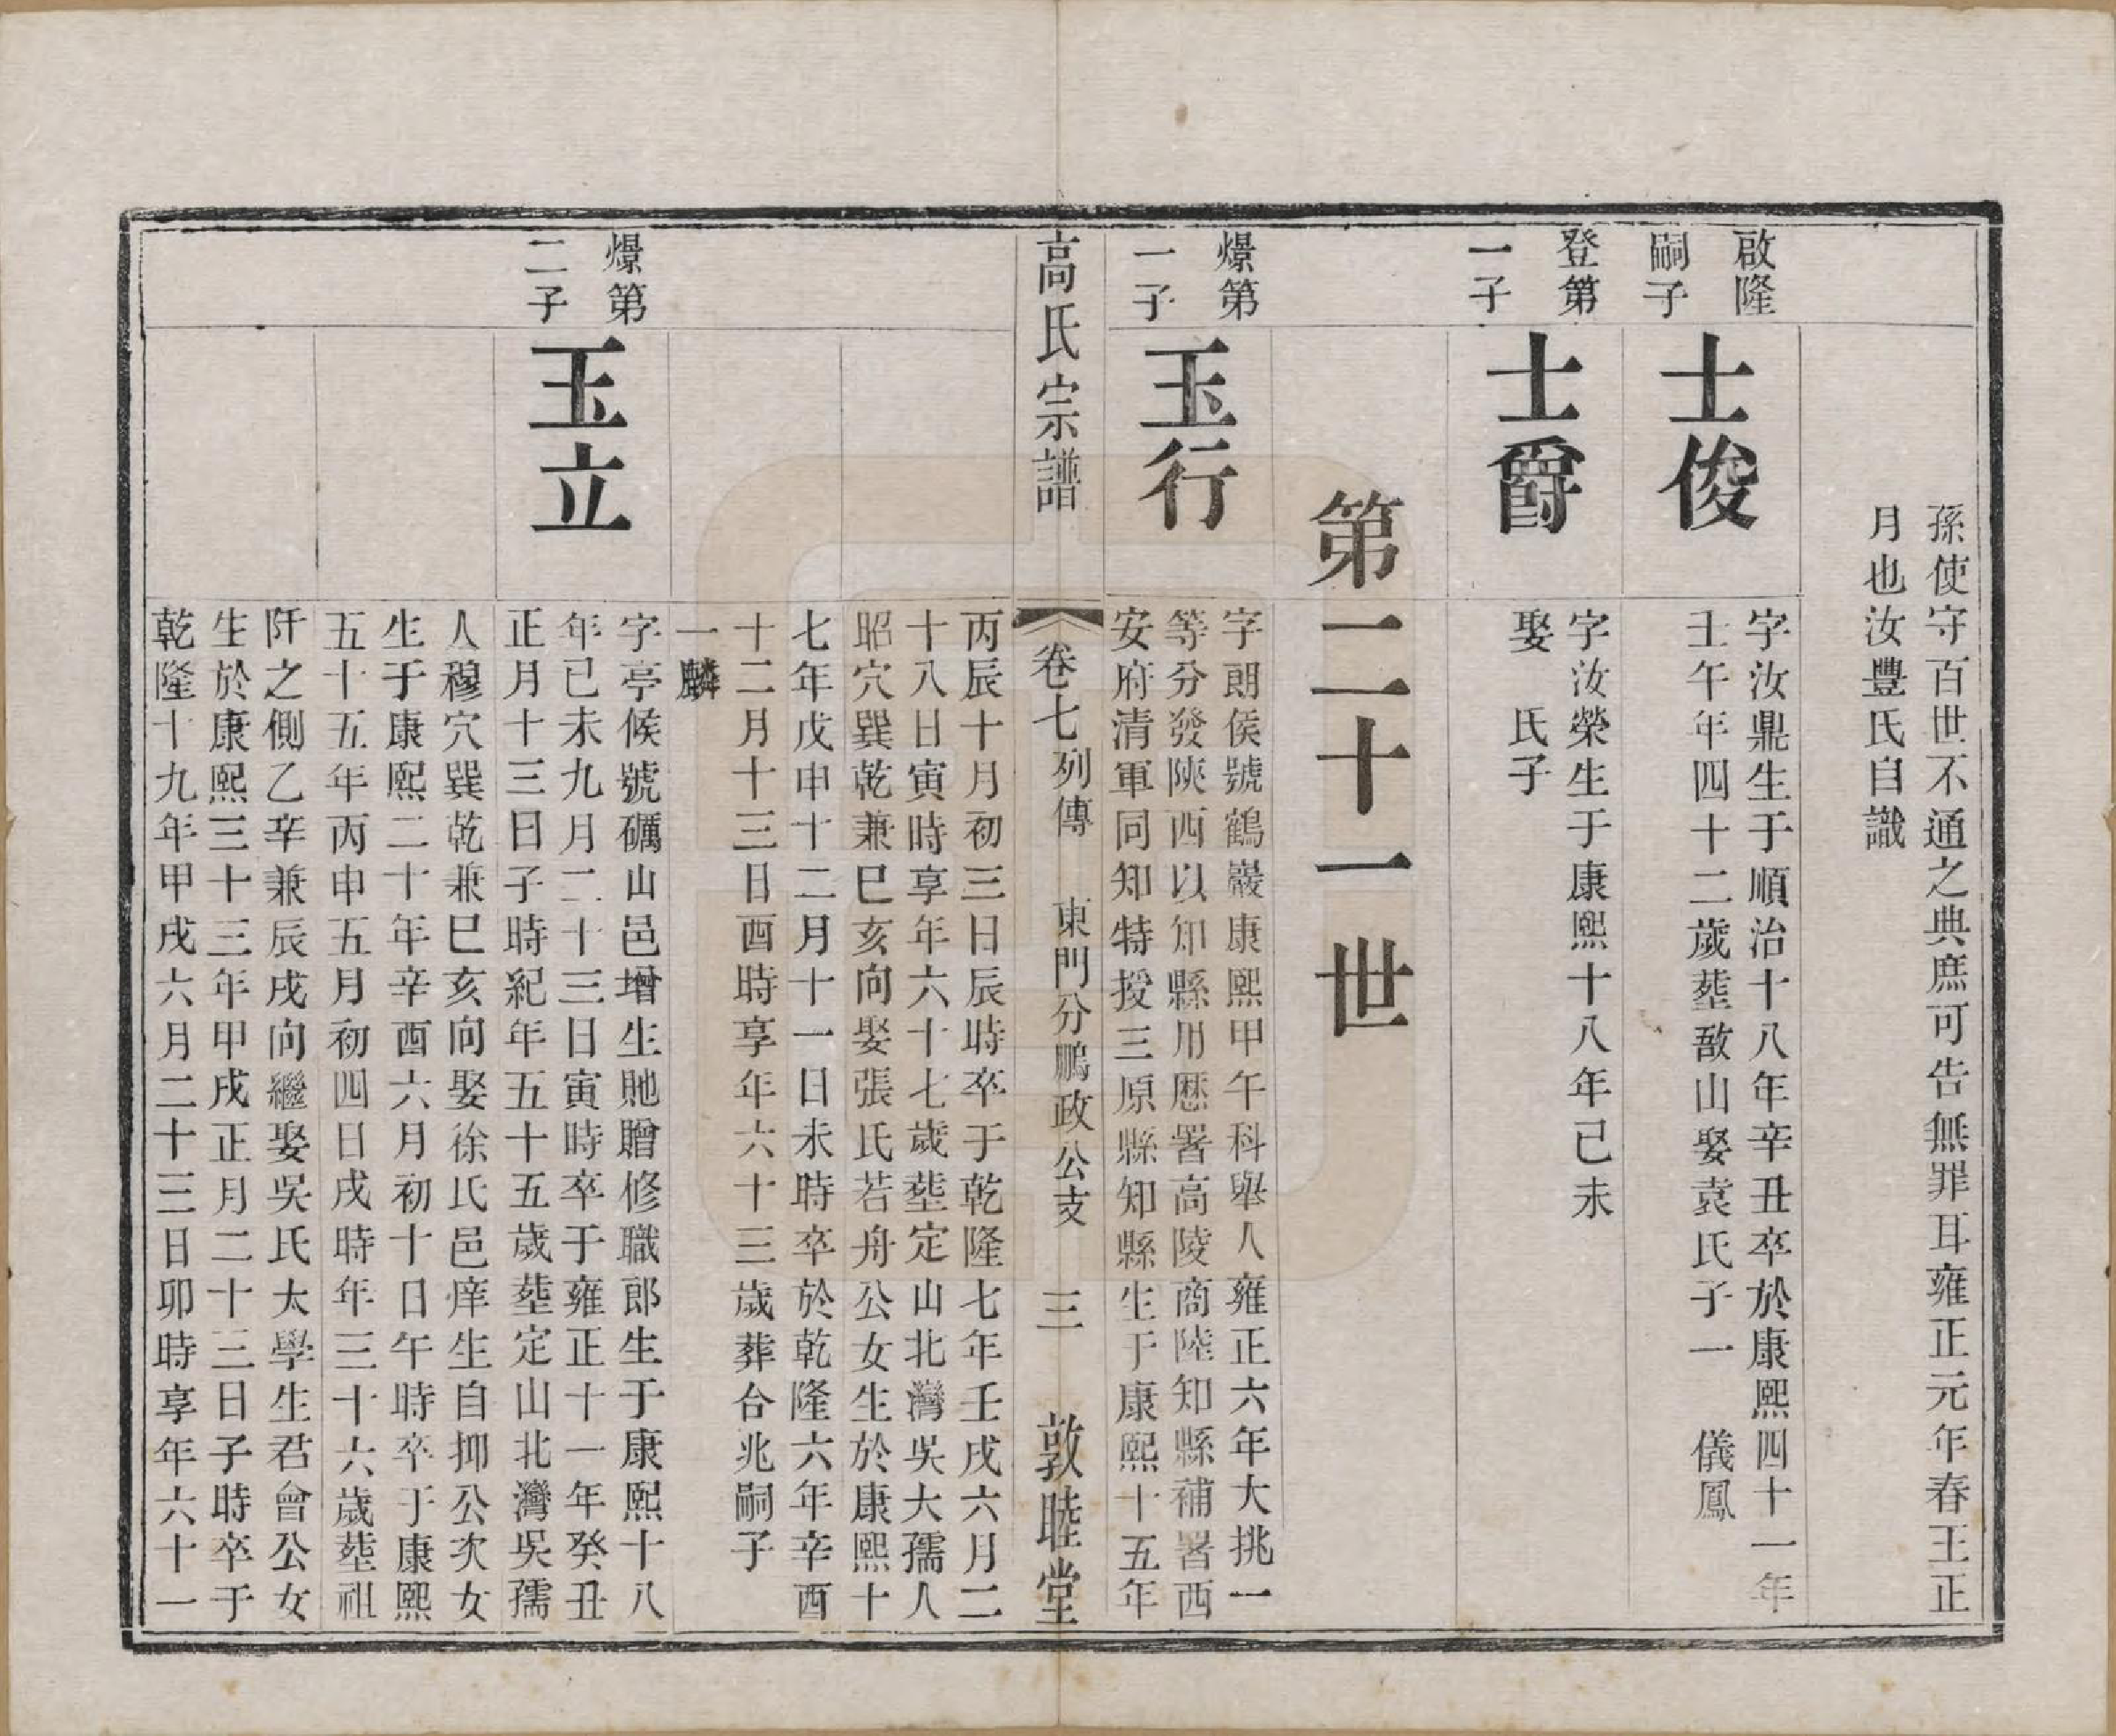 孫使守百世不通之典庶可告無罪耳雍正元年春王正
月也汝豐氏自識
啟隆
嗣子
士俊
字汝鼎生于順治十八年辛丑卒於康熙四十一年
壬午年四十二歲塟敔山娶袁氏子一 儀鳳
登第
一子
士爵
字汝榮生于康熙十八年己未
娶 氏子
第二十一世
爆第
一子
玉行
字朗侯號鶴巖康熙甲午科舉人雍正六年大挑一
等分發陝西以知縣用歷署高陵商陸知縣補署西
安府清軍同知特授三原縣知縣生于康熙十五年
高氏宗譜
卷七列傳 東門分鵬政公支 三 敦睦堂
丙辰十月初三日辰時卒于乾隆七年壬戌六月二
十八日寅時享年六十七歲塟定山北灣吳大孺人
昭穴巽乾兼巳亥向娶張氏若舟公女生於康熙十
七年戊申十二月十一日未時卒於乾隆六年辛酉
十二月十三日酉時享年六十三歲葬合兆嗣子
一麟
爆第
二子
玉立
字亭候號礪山邑增生貤贈修職郎生于康熙十八
年己未九月二十三日寅時卒于雍正十一年癸丑
正月十三日子時紀年五十五歲塟定山北灣吳孺
人穆穴巽乾兼巳亥向娶徐氏邑庠生自抑公次女
生于康熙二十年辛酉六月初十日午時卒于康熙
五十五年丙申五月初四日戌時年三十六歲塟祖
阡之側乙辛兼辰戌向繼娶吳氏太學生君會公女
生於康熙三十三年甲戌正月二十三日子時卒于
乾隆十九年甲戌六月二十三日卯時享年六十一